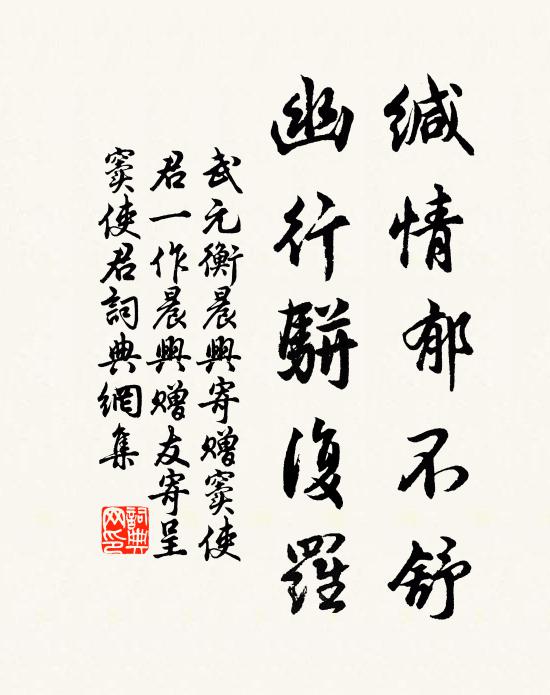 缄情郁不舒
幽行骈復羅
武元衡晨興寄贈竇使
君一作晨興贈友寄呈
竇使君詞典網集
詞典
网印